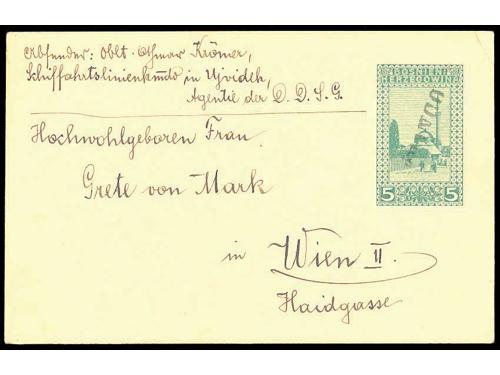 Absender: Oblt. Othmar Krömer,
Schiffahrtslinienkmdo in Ujvidék,
Agentie der D. D. S. G.
BOSNIEN
HERZEGOWINA
5 5
Hochwohlgeboren Frau
Grete von Mark
in Wien II.
Haidgasse